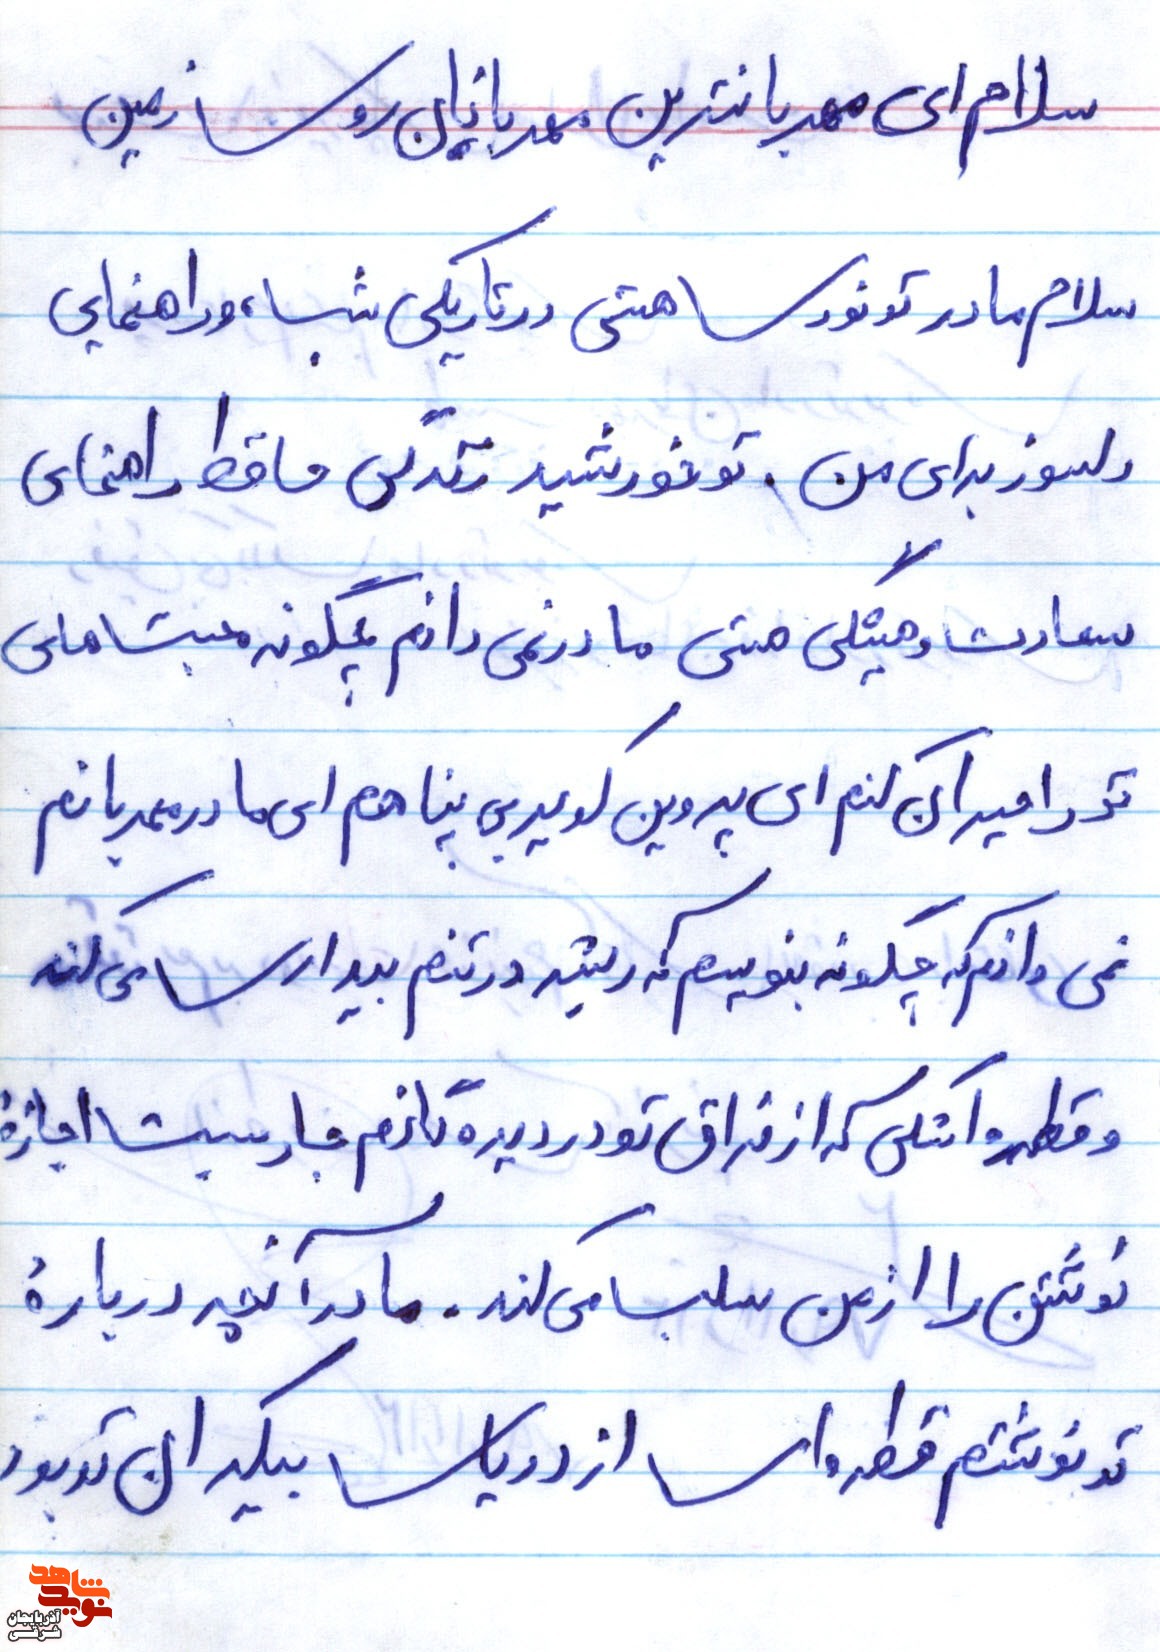 سلام ای مهربانترین مهربانان روی زمین
سلام مادر تو نوری هستی در تاریکی شب، و راهنمایی
دلسوز برای من . تو خورشید زندگی ما قط راهنمای
سعادت و همیشگی هستی مادر نمی دانم چگونه محبت های
تو را جبران کنم ای پروین کویر بی پناهم ای مادر مهربانم
نمی دانم که چگونه بنویسم که ریشه در تنم بیداری می کند
و قطره اشکی که از فراق تو در دیده گانم جاریست اجازهٔ
نوشتن را از من سلب می کند . مادر آنچه دربارهٔ
تو نوشتم قطره ای از دریای بیکران تو بود
نوید شاهد
آذربایجان غربی